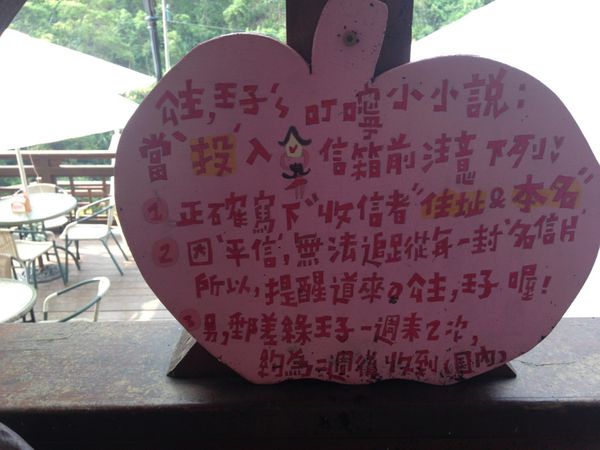 公主,王子ㄟ叮嚀小小說:
當"投"入 信箱前注意下列:
1 正確寫下"收信者""住址&本名"
2 因"平信",無法追蹤每一封"名信片"
所以,提醒道來の公主,王子 喔!
3 另,郵差綠王子一週來2次,
約為二週後收到(國內)